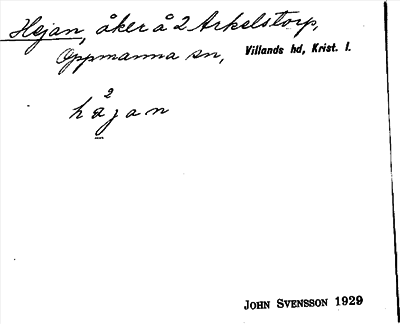 Hejan, åker å 2 Arkelstorp,
Oppmanna sn, Villands hd, Krist. l.
2
håjan
JOHN SVENSSON 1929